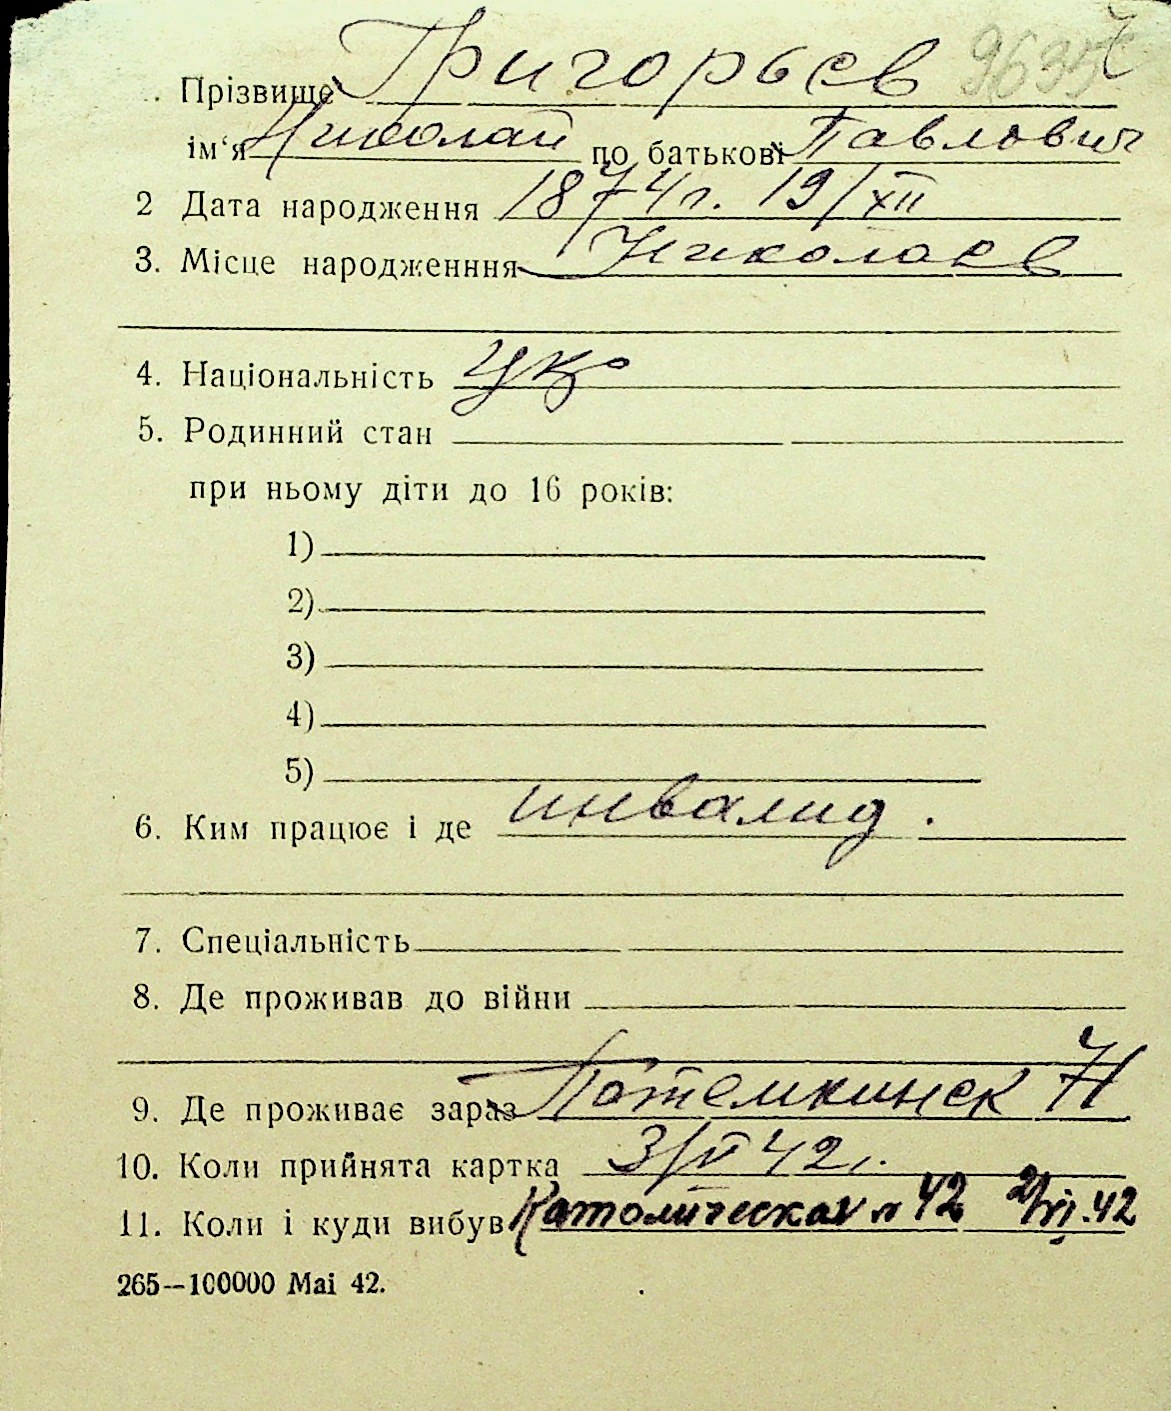 . Прізвище Григорьев 9635
ім‘я Николай по батькові Павлович
2 Дата народження 1874 г. 19/XII
3. Місце народженння Николаев
4. Національність укр
5. Родинний стан
при ньому діти до 16 років:
1)
2)
3)
4)
5)
6. Ким працює і де инвалид.
7. Спеціальність
8. Де проживав до війни
9. Де проживає зараз Потемкинск 71
10. Коли прийнята картка 3/VI 42 г.
11. Коли і куди вибув Католическая 42 2/VI.42
265—100000 Mai 42.